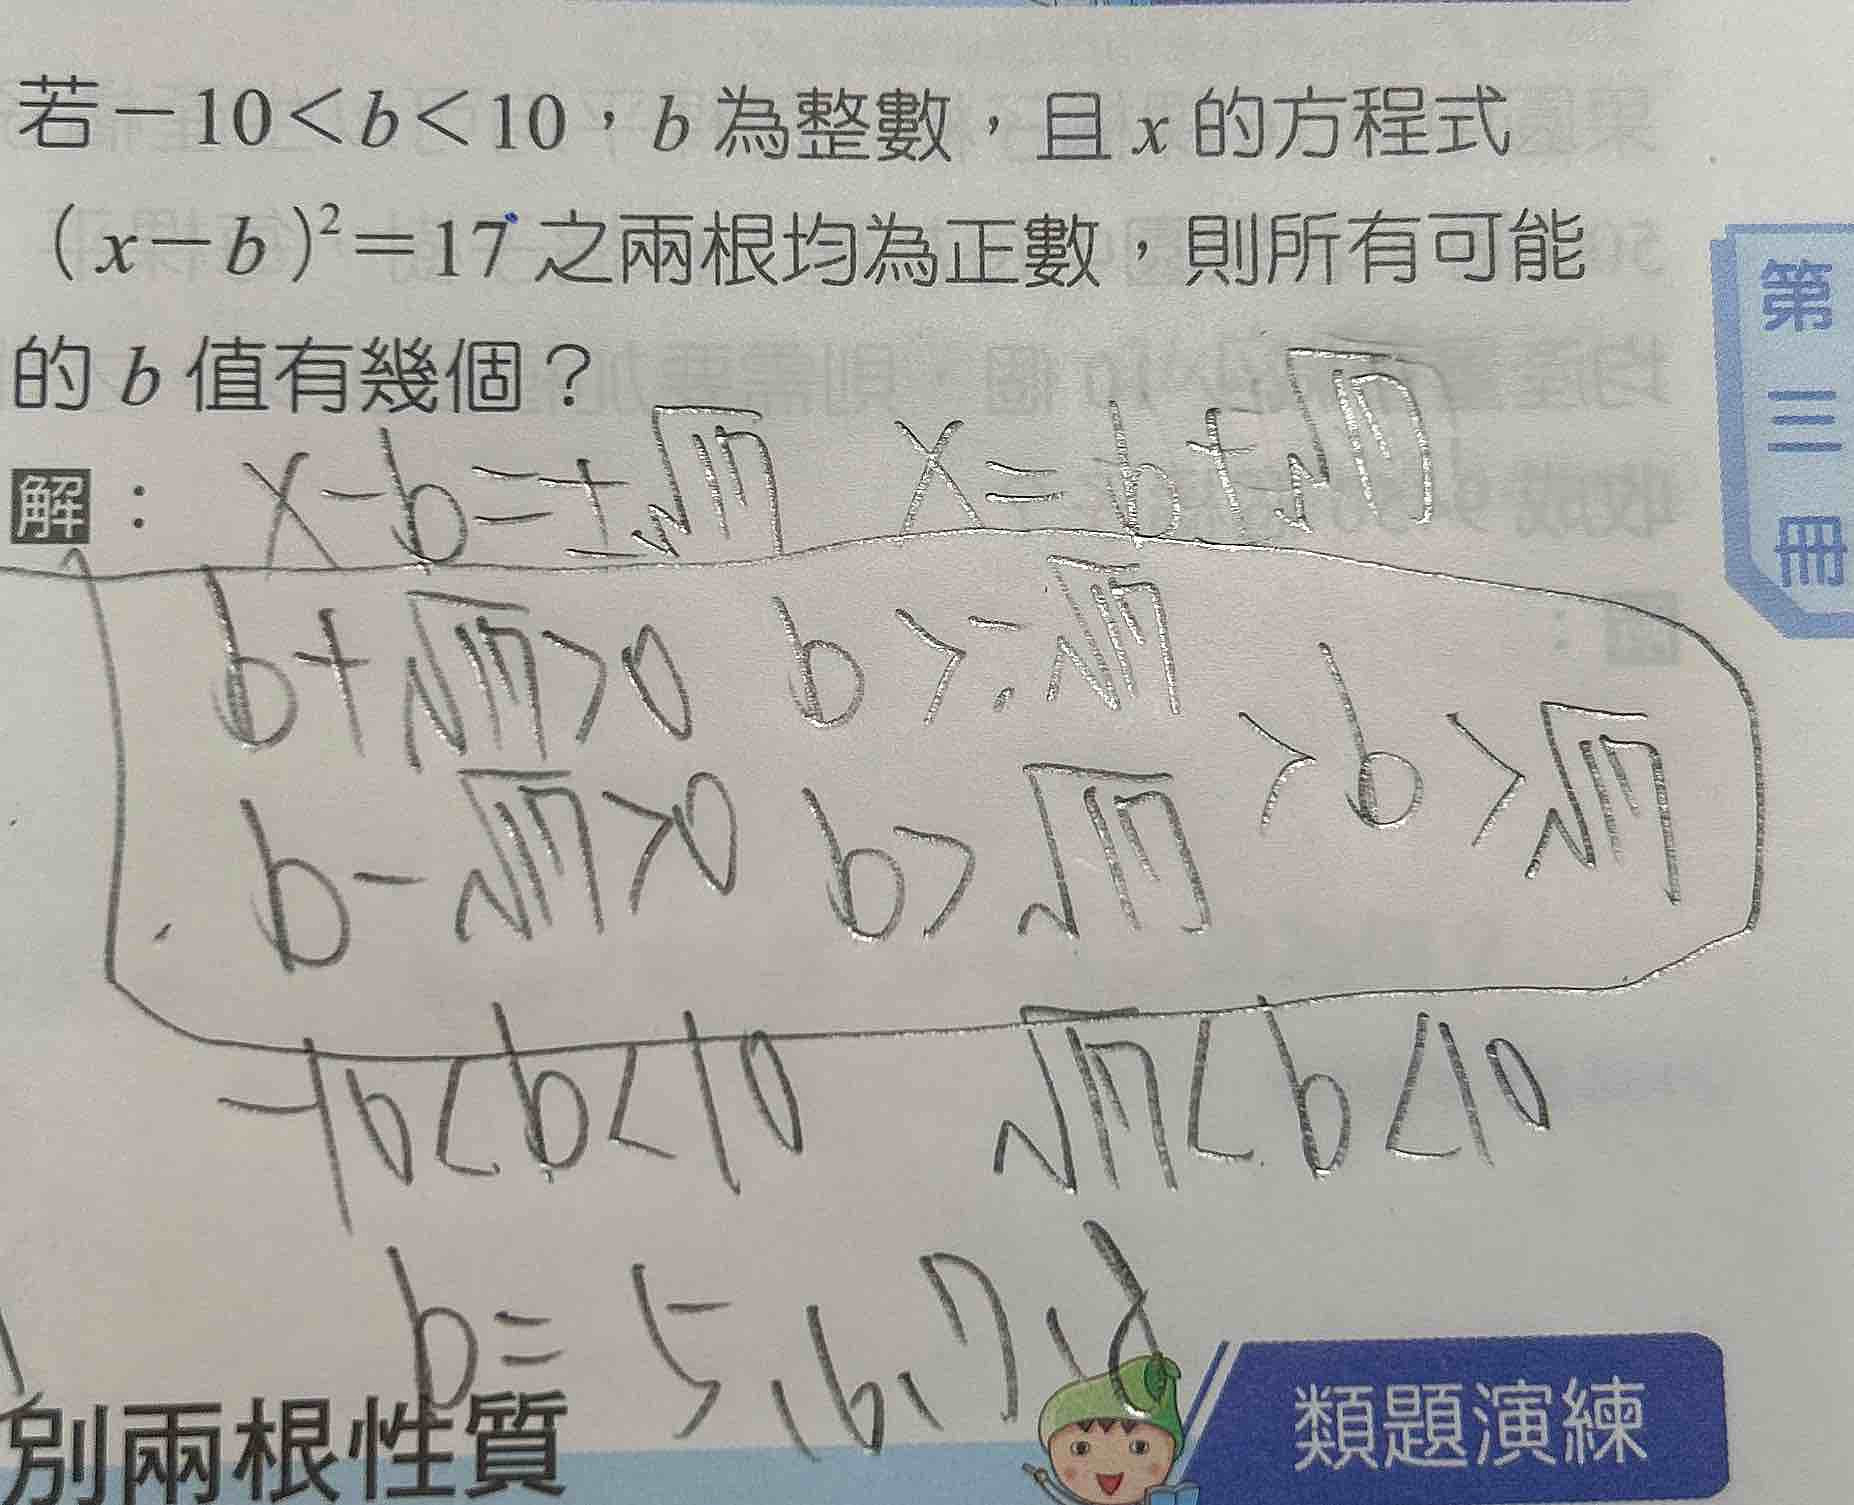 若−10<b<10，b 為整數，且 x 的方程式
(x−b)²=17 之兩根均為正數，則所有可能
的 b 值有幾個？
解： x-b=±√17 x=b±√17
b+√17>0 b>-√17
>b>√17
b-√17>0 b>√17
-10<b<10 √17<b<10
b=5,6,7,8
別兩根性質
類題演練
第三冊